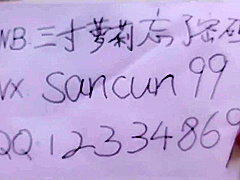 WB.三寸萝莉忘了密码
VX sancun 99
QQ.12334869